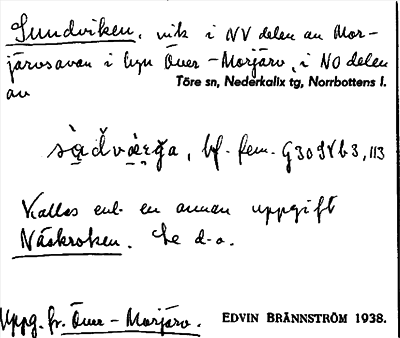 Sundviken, vik i NV delen av Mor-
järvsavan i byn Över-Morjärv, i NO delen
av
Töre sn, Nederkalix tg, Norrbottens l.
bf. fem. G3098b3, 113
Kallas enl. en annan uppgift
Näskroken. Se d.o.
Uppg. fr. Över-Morjärv.
EDVIN BRÄNNSTRÖM 1938.